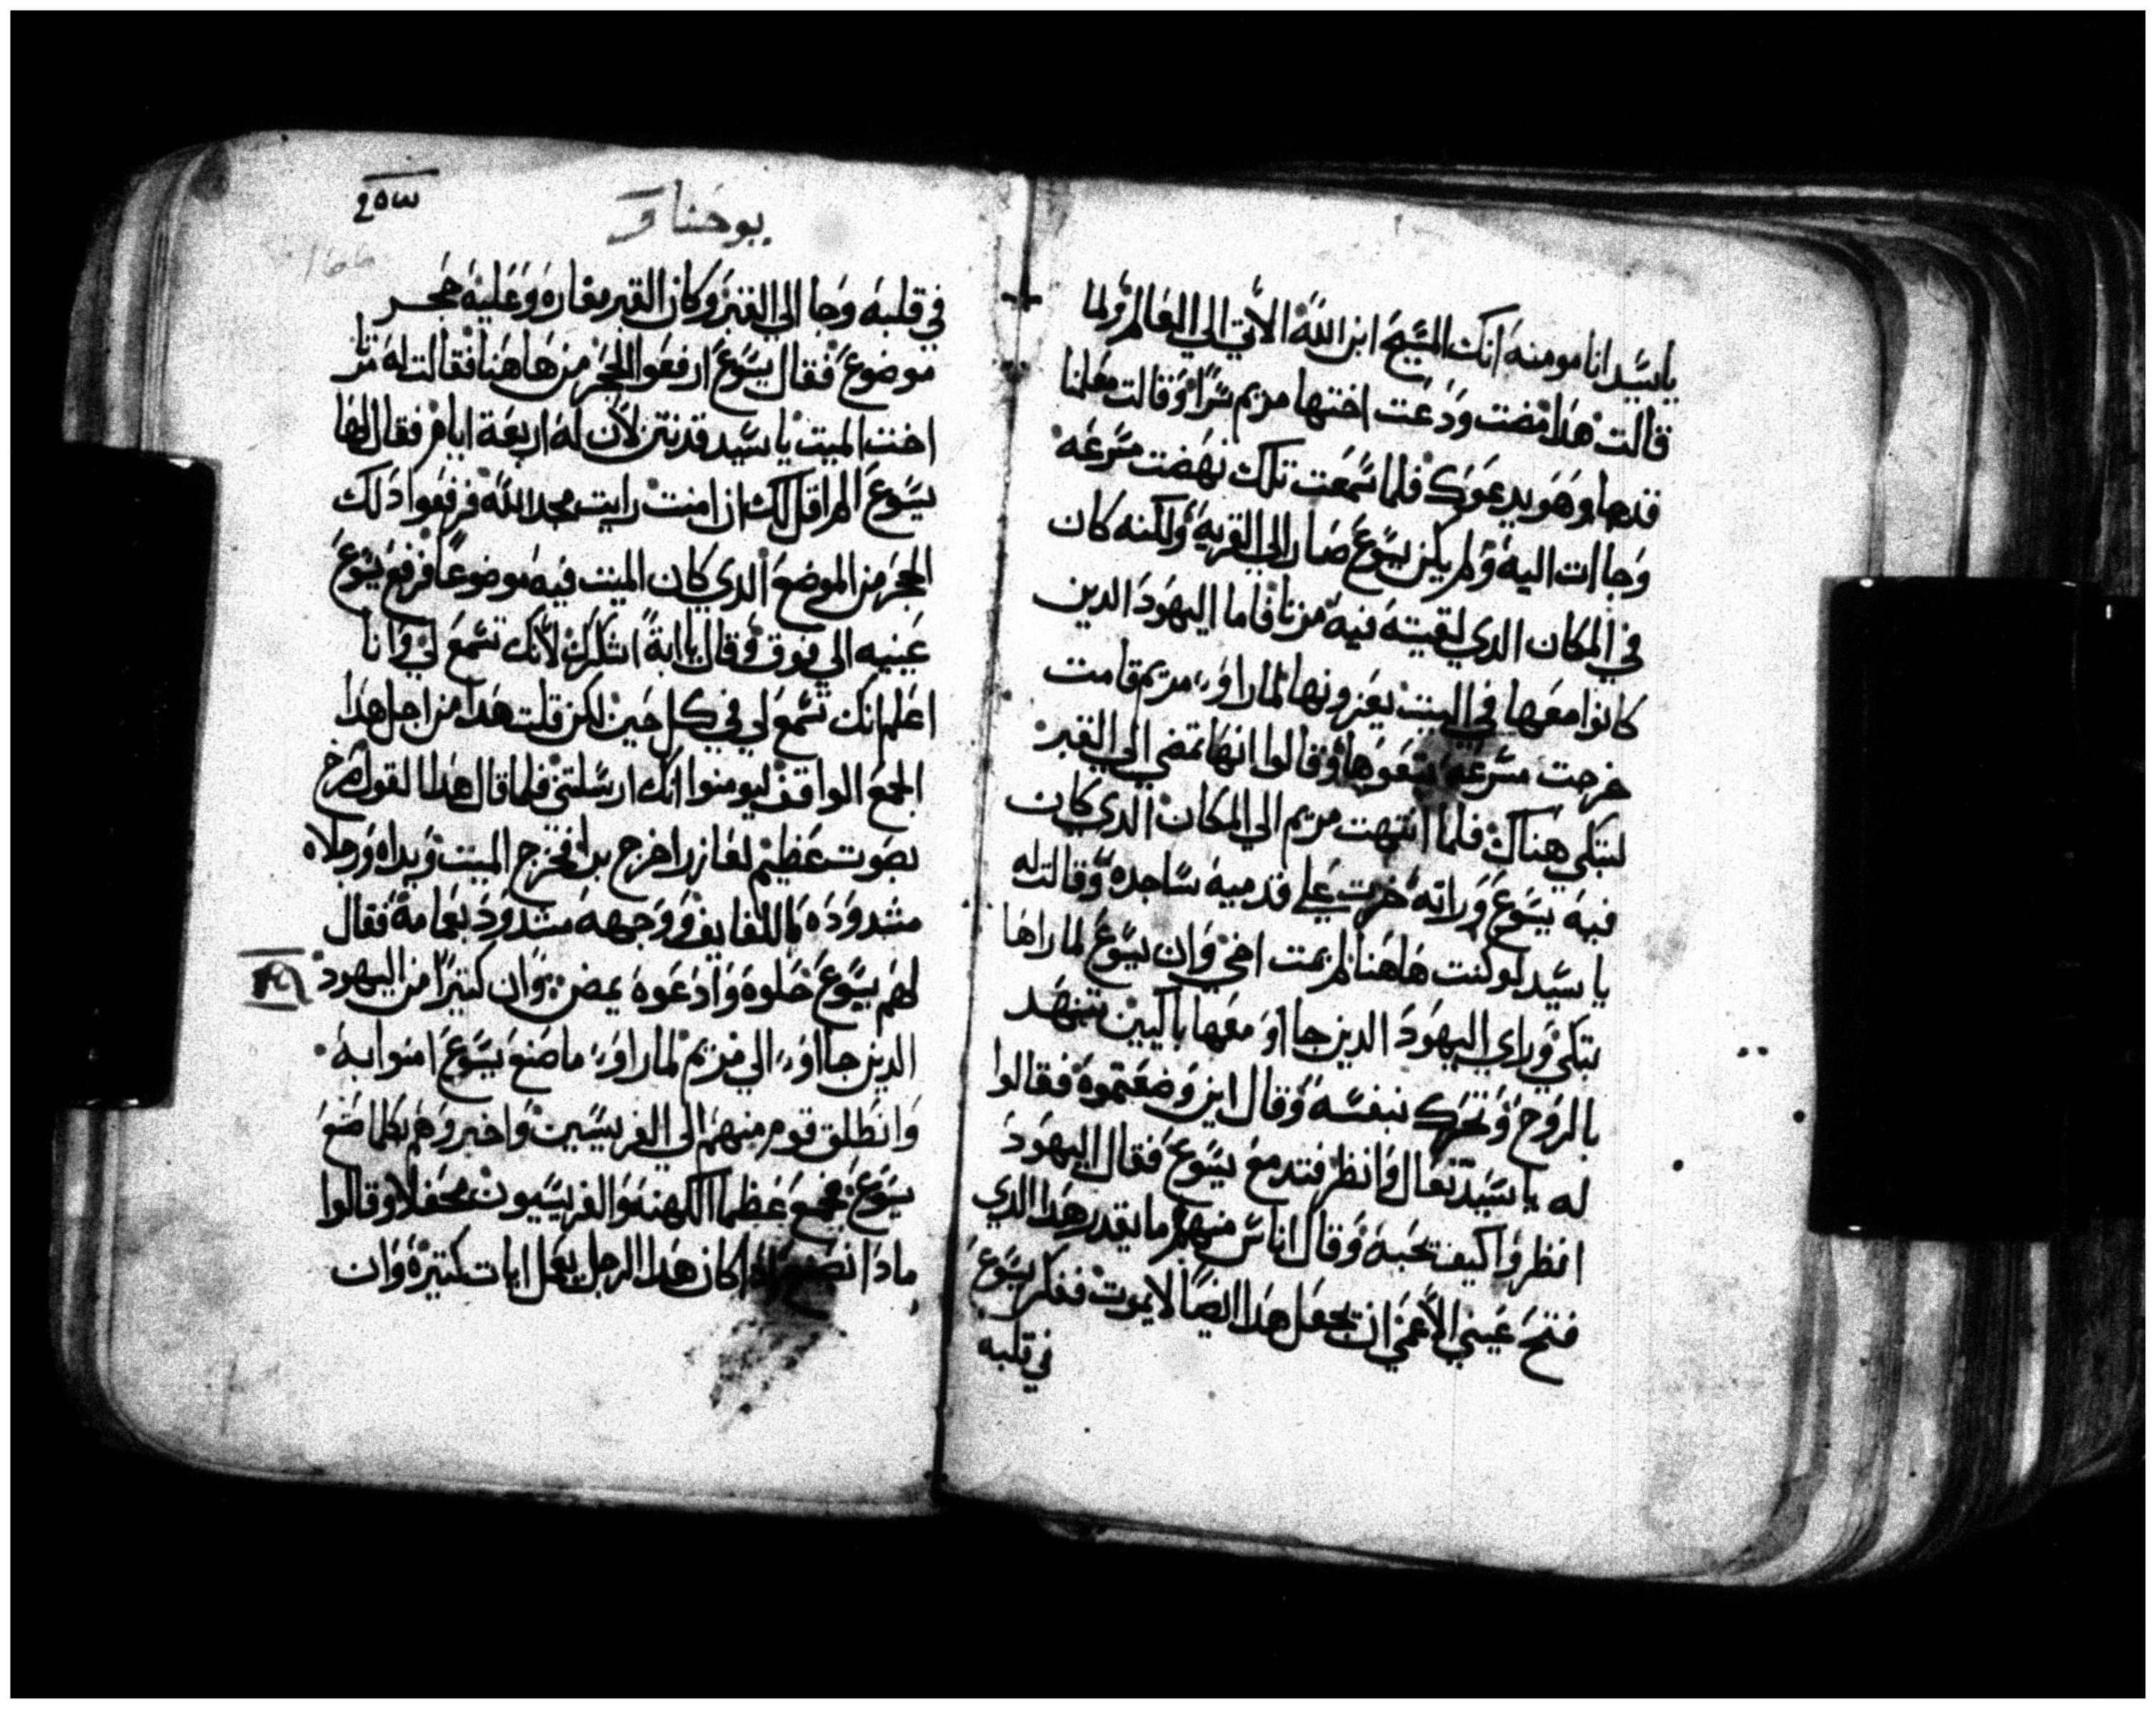 ياسيد انا مومنه انك المسيح ابن الله الاتي الي العالم ولما
قالت هدا مضت ودعت اختها مريم سرا وقالت معلمنا
قدها وهو يدعوك فلما سمعت تلك نهضت مسرعه
وجاات اليه ولم يكن يسوع صار الي القريه ولكنه كان
في المكان الدي لقيته فيه مرتا فاما اليهود الدين
كانوا معها في البيت يعزونها لما راوا مريم قامت
خرجت مسرعه تبعوها وقالوا انها تمضي الي القبر
لتبكي هناك فلما انتهت مريم الي المكان الدي كان
فيه يسوع وراته خرت علي قدميه ساجده وقالت له
يا سيد لو كنت هاهنا لم يمت اخي وان يسوع لما راها
تبكي وراي اليهود الدين جااو معها باكيين تنهد
بالروح وتحرك بنفسه وقال اين وضعتموه فقالوا
له ياسيد تعال وانظر فتدمع يسوع فقال اليهود
انظروا كيف تحبه وقال اناس منهم ما يقدر هدا الدي
فتح عيني الاعمي ان يجعل هدا ايضا لا يموت ففكر يسوع
في قلبه
يوحنا
٢٥٣
في قلبه وجا الي القبر وكان القبر مغاره وعليه حجر
موضوع فقال يسوع ارفعوا الحجر من هاهنا فقالت له مرتا
اخت الميت ياسيد قد نتن لان له اربعة ايام فقال لها
يسوع الم اقل لك ان امنت رايت مجد الله فرفعوا دلك
الحجر من الموضع الدي كان الميت فيه موضوعا فرفع يسوع
عينيه الي فوق وقال يا ابة اشكرك لانك تسمع لي وانا
اعلم انك تسمع لي في كل حين لكن قلت هدا من اجل هدا
الجمع الواقف ليومنوا انك ارسلتني فلما قال هدا القول صرخ
بصوت عظيم لعازر اخرج برا فخرج الميت ويداه ورجلاه
مشدوده باللفايف ووجهه مشدود بعمامة فقال
لهم يسوع حلوه وادعوه يمض وان كتيرا من اليهود
الدين جااوا الي مريم لما راوا ما صنع يسوع امنوا به
وانطلق قوم منهم الي الفريسين واخبروهم بكلما صنع
يسوع فجمع عظما الكهنه والفريسيون محفلا وقالوا
مادا نصنع ادا كان هدا الرجل يعمل ايات كتيرة وان